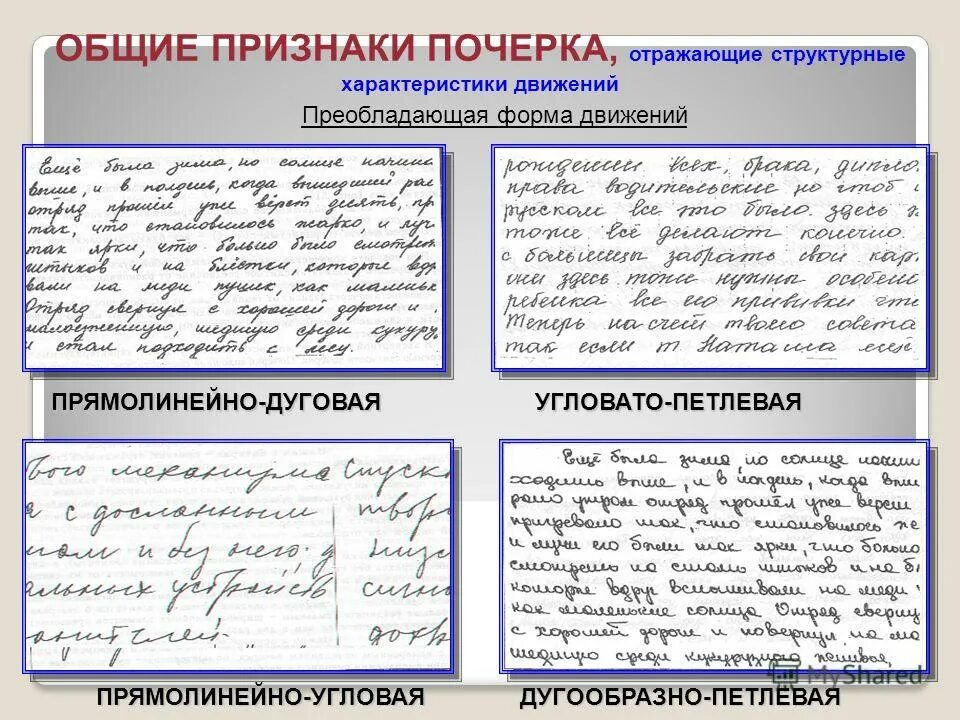 ОБЩИЕ ПРИЗНАКИ ПОЧЕРКА, отражающие структурные
характеристики движений
Преобладающая форма движений
Ещё была зима, но солнце начина
выше, и в полдень, когда вышедший ран
отряд прошёл уже вёрст десять, пр
так, что становилось жарко, и луч
так ярки, что больно было смотрет
штыков и на блёстки, которые вдр
вали на меди пушек, как маленьк
Отряд свернул с хорошей дороги и
малоезженную, шедшую среди кукуру
и стал подходить с лесу.
рождении всех, брака, дипло
права водительские но чтоб
русском все это было. здесь
тоже всё делают конечно.
с больницы забрать свои кар
они здесь тоже нужны особено
ребенка все его прививки что
Теперь на счет твоего совета
так если т Наташа ещё
ПРЯМОЛИНЕЙНО-ДУГОВАЯ
УГЛОВАТО-ПЕТЛЕВАЯ
механизма Спуск
я с досланным
и без него.
альных устройств
Ещё была зима, но солнце начин
ходить выше, и в полдень, когда выш
рано утром отряд прошёл уже верст
пригревало так, что становилось жа
и лучи его были так ярки, что больно
смотреть на сталь штыков и на б
которые вдруг вспыхивали на меди
как маленькие солнца. Отряд сверну
с хорошей дороги и повернул на ма
шедшую среди кукурузного
ПРЯМОЛИНЕЙНО-УГЛОВАЯ
ДУГООБРАЗНО-ПЕТЛЕВАЯ
MyShared